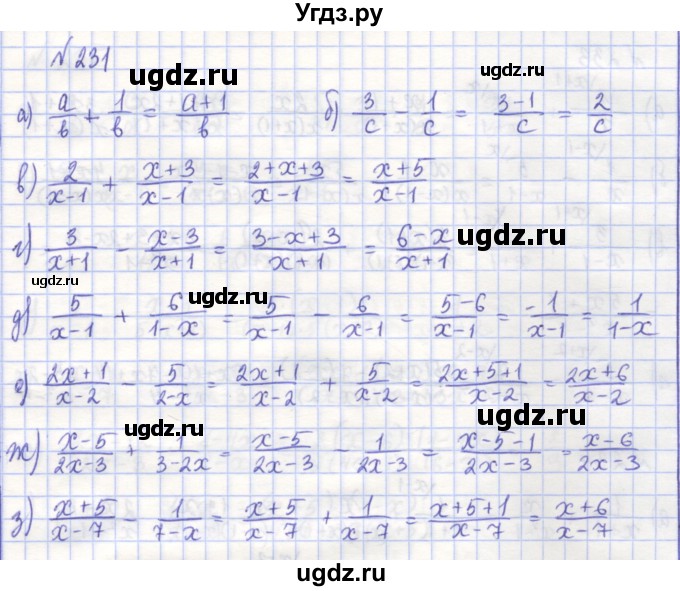 Угдз.ру
№231
ugdz.ru ugdz.ru
а) a/в + 1/в = (a+1)/в б) 3/c - 1/c = (3-1)/c = 2/c
в) 2/(x-1) + (x+3)/(x-1) = (2+x+3)/(x-1) = (x+5)/(x-1)
г) 3/(x+1) - (x-3)/(x+1) = (3-x+3)/(x+1) = (6-x)/(x+1)
ugdz.ru
ugdz.ru
ugdz.ru
д) 5/(x-1) + 6/(1-x) = 5/(x-1) - 6/(x-1) = (5-6)/(x-1) = -1/(x-1) = 1/(1-x)
е) (2x+1)/(x-2) - 5/(2-x) = (2x+1)/(x-2) + 5/(x-2) = (2x+5+1)/(x-2) = (2x+6)/(x-2)
ugdz.ru
ugdz.ru
ж) (x-5)/(2x-3) + 1/(3-2x) = (x-5)/(2x-3) - 1/(2x-3) = (x-5-1)/(2x-3) = (x-6)/(2x-3)
з) (x+5)/(x-7) - 1/(7-x) = (x+5)/(x-7) + 1/(x-7) = (x+5+1)/(x-7) = (x+6)/(x-7)
ugdz.ru